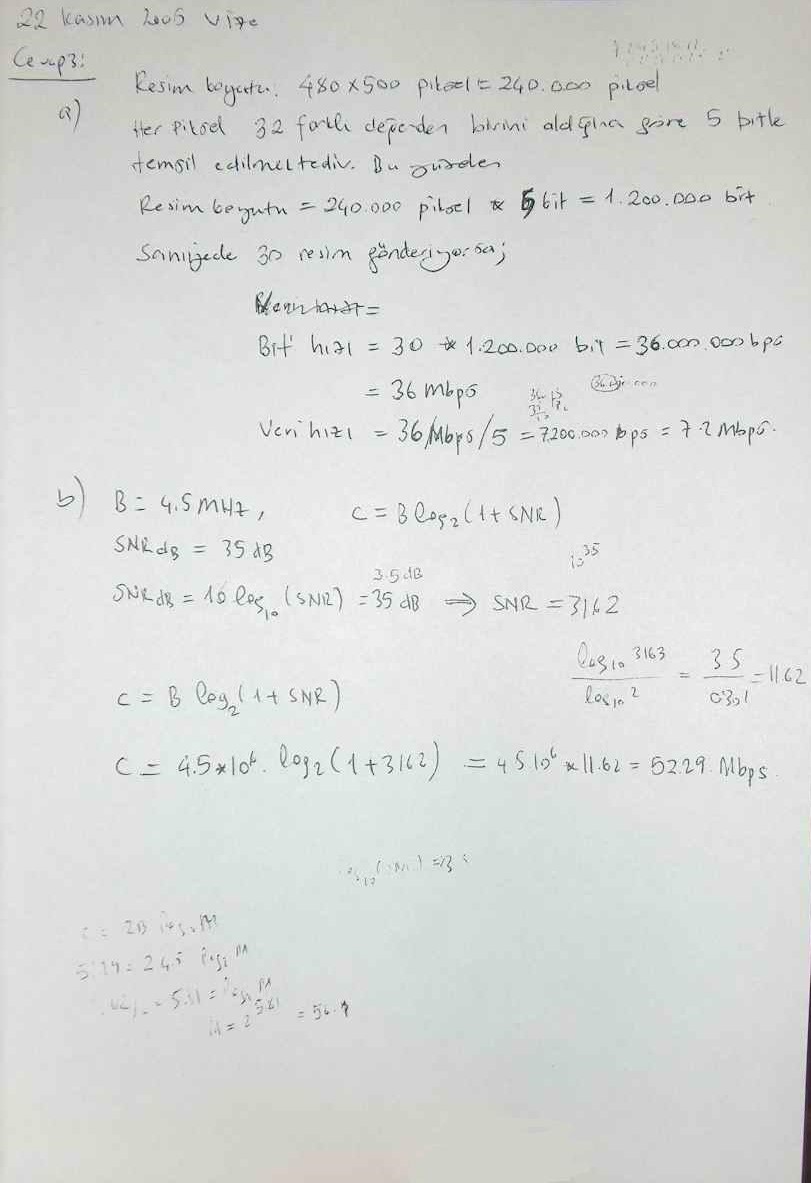 22 Kasım 2005 Vize
Cevap3:
a) Resim boyutu: 480x500 piksel = 240.000 piksel
Her Piksel 32 farklı değerden birini aldığına göre 5 bitle
temsil edilmektedir. Bu yüzden
Resim boyutu = 240.000 piksel * 5 bit = 1.200.000 bit
Saniyede 30 resim gönderiyorsa;
Bit hızı = 30 * 1.200.000 bit = 36.000.000 bps
= 36 Mbps
Veri hızı = 36 Mbps/5 = 7.200.000 bps = 7.2 Mbps.
b) B = 4.5 MHz, C = B log₂(1+SNR)
SNRdB = 35 dB
10^35
3.5 dB
SNRdB = 10 log₁₀ (SNR) = 35 dB ⇒ SNR = 3162
log₁₀ 3163 / log₁₀ 2 = 3.5 / 0.301 = 11.62
C = B log₂(1+SNR)
C = 4.5*10⁶. log₂(1+3162) = 4.5 10⁶ * 11.62 = 52.29 Mbps
C = 2B log₂ M
= 5.81 = log₂ M
M = 2^5.81 = 56.1